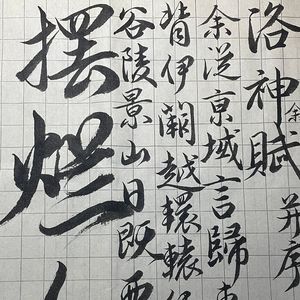 洛神賦并序
余從京域言歸
背伊闕越轘轅
谷陵景山日既西
摆烂